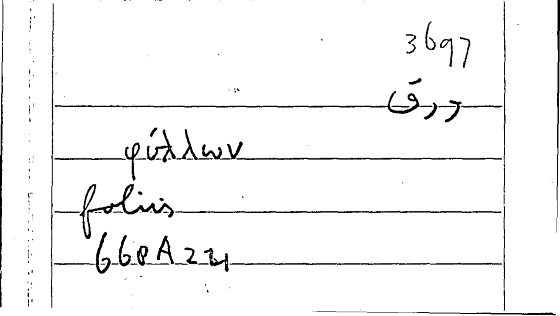 3697
ورق
φύλλων
foliis
668A24